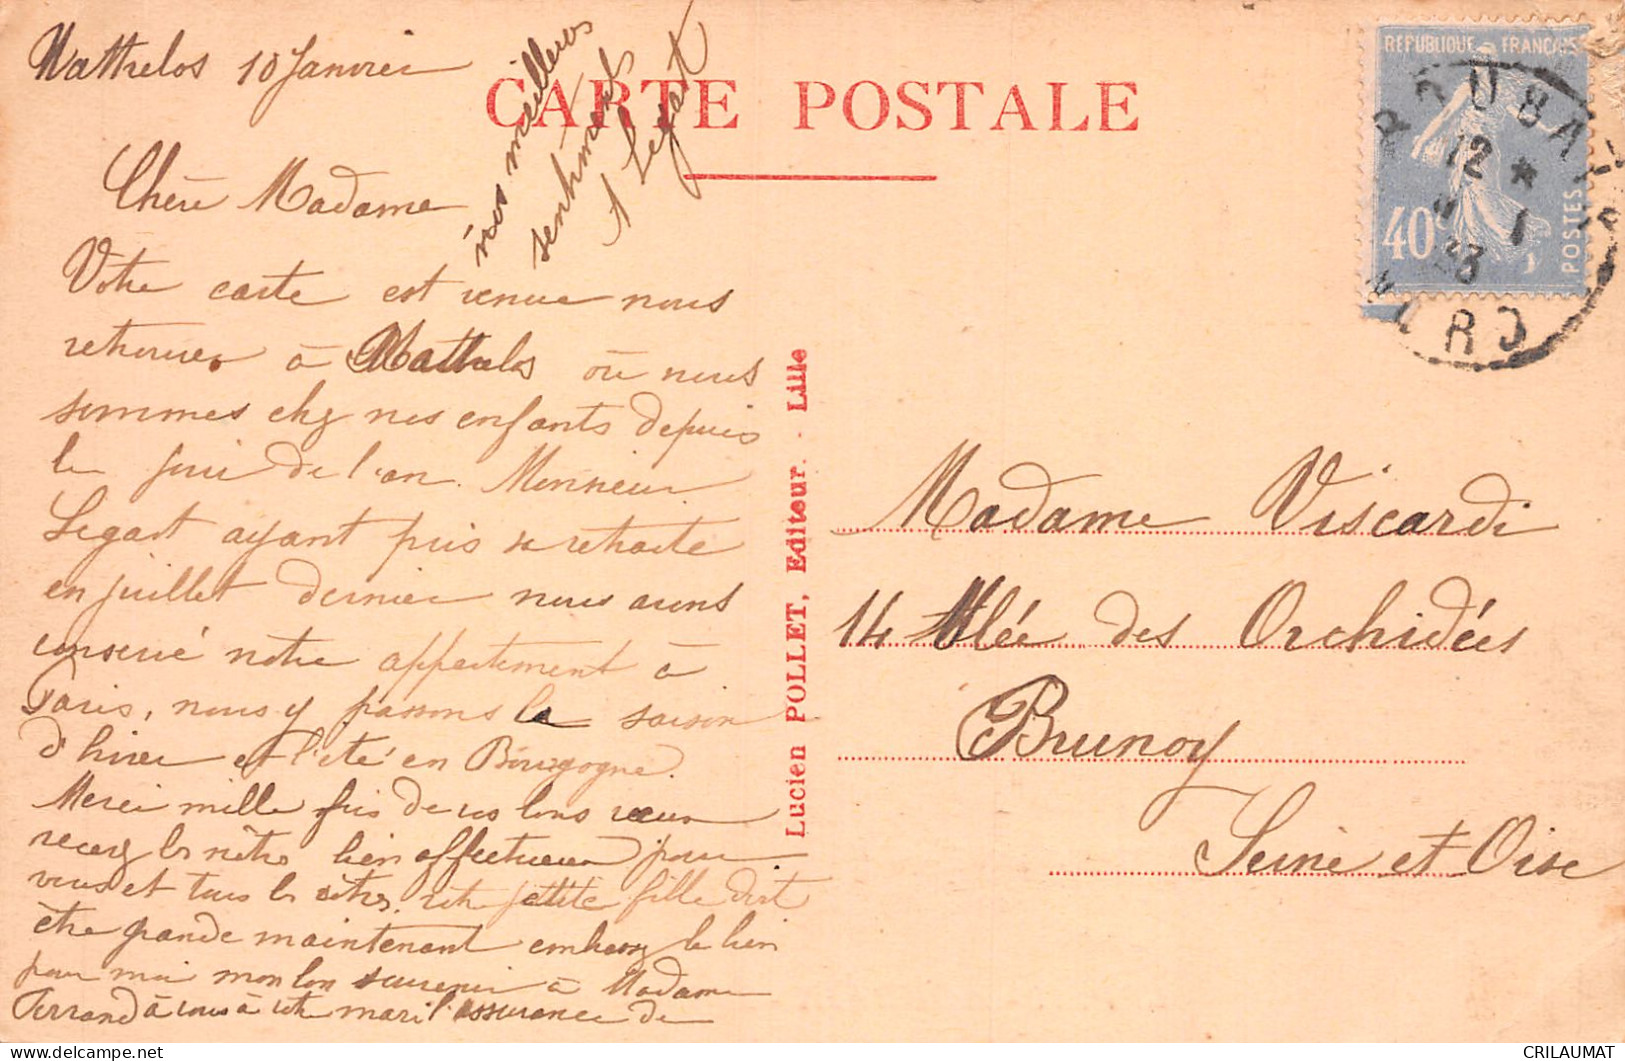 Wattrelos 10 Janvier
CARTE POSTALE
Chère Madame
Votre carte est venue nous
retrouver à Wattrelos où nous
sommes chez nos enfants depuis
le jour de l'an. Monsieur
Legart ayant pris sa retraite
en juillet dernier nous avons
conservé notre appartement à
Paris, nous y passons la saison
d'hiver et l'été en Bourgogne.
Merci mille fois de vos bons vœux
recevez les nôtres bien affectueux pour
vous et tous les vôtres. votre petite fille doit
être grande maintenant embrassez la bien
pour moi mon bon souvenir à Madame
Ferrand à vous à votre mari l'assurance de
nos meilleurs
sentiments
A Legart
Lucien POLLET, Editeur. Lille
REPUBLIQUE FRANÇAISE
40c
POSTES
ROUBAIX
12 *
1
33
NORD
Madame Viscardi
14 Allée des Orchidées
Brunoy
Seine et Oise
CRILAUMAT
delcampe.net